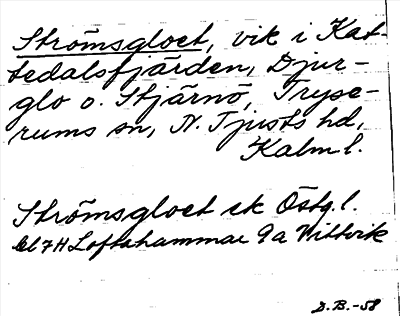 Strömsgloet, vik i Kat-
tedalsfjärden, Djur-
glo o. Stjärnö, Tryse-
rums sn, N. Tjusts hd,
Kalm l.
Strömsgloet ek Östg. l.
bl 7H Loftahammar 9a Vittvik
D.B.-58